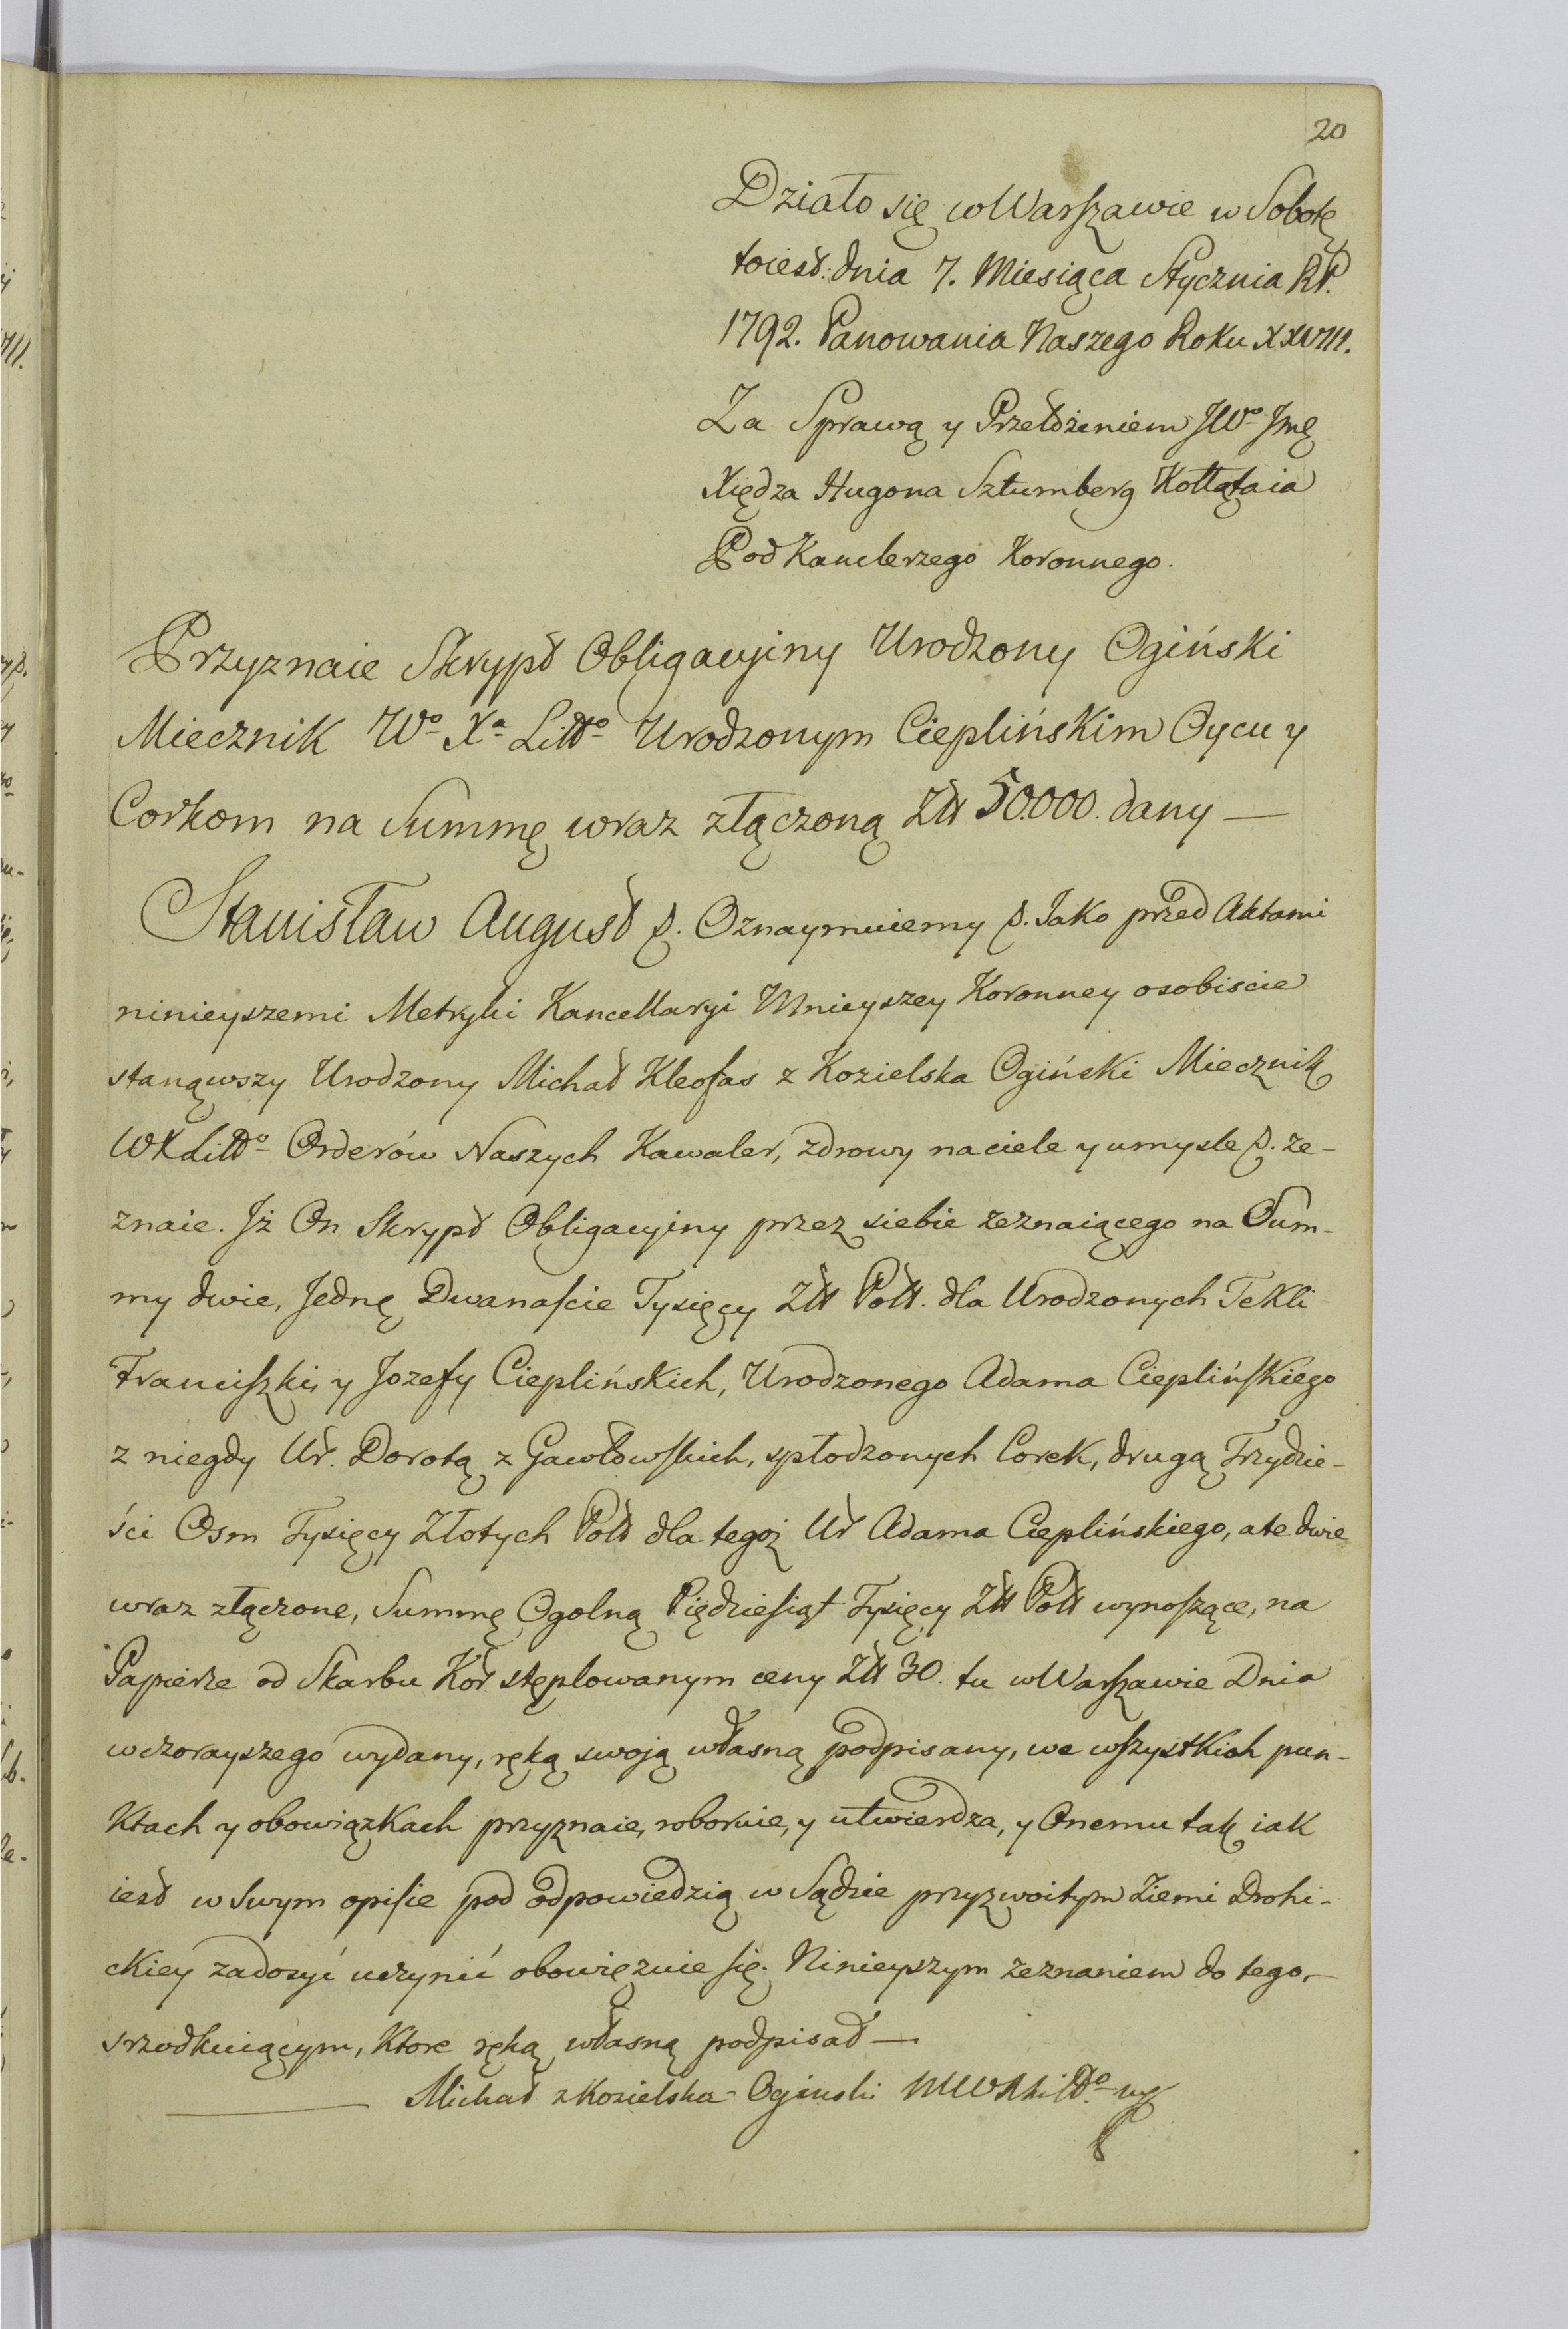 20
Działo się w Warszawie w Sobotę
toiest: dnia 7. Miesiąca Stycznia RP.
1792. Panowania Naszego Roku XXVIII.
Za Sprawą y Przełożeniem JWo Jmę
Xiędza Hugona Sztumberg Kołłątaia
Pod Kanclerzego Koronnego.
Przyznaie Skrypt Obligacyiny Urodzony Ogiński
Miecznik Wo Xa Littgo Urodzonym Cieplińskim Oycu y
Corkom na Summę wraz złączoną Złł 50000. dany —
Stanisław August p. Oznaymuiemy p. Jako przed Aktami
ninieyszemi Metryki Kancellaryi Mnieyszey Koronney osobiscie
stanąwszy Urodzony Michał Kleofas z Kozielska Ogiński Miecznik
WX Littgo Orderów Naszych Kawaler, zdrowy na ciele y umysle p. ze-
znaie. Jż On Skrypt Obligacyiny przez siebie zeznaiącego na Sum-
my dwie, Jednę Dwanaście Tysięcy Złł Poll. dla Urodzonych Tekli
Franciszki, y Jozefy Cieplińskich, Urodzonego Adama Cieplińskiego
z niegdy Ur. Dorotą z Gawłowskich, spłodzonych Corek, drugą Trzydzie-
ści Osm Tysięcy Złotych Poll dla tegoż Ur Adama Cieplińskiego, a te dwie
wraz złączone, Summę Ogolną Piędziesiąt Tysięcy Złł Poll wynoszące, na
Papierze od Skarbu Kor stęplowanym ceny Złł 30. tu w Warszawie Dnia
wczorayszego wydany, ręką swoją własną podpisany, we wszystkich pun-
ktach y obowiązkach przyznaie, roboruie, y utwierdza, y Onemu tak iak
iest w Swym opisie pod odpowiedzią w Sądzie przyzwoitym Ziemi Drohi-
ckiey zadosyć uczynić obowięzuie się. Ninieyszym zeznaniem do tego,
srzodkuiącym, Ktore ręką własną podpisał —
Michał z Kozielska Oginski MWX Littgo mp